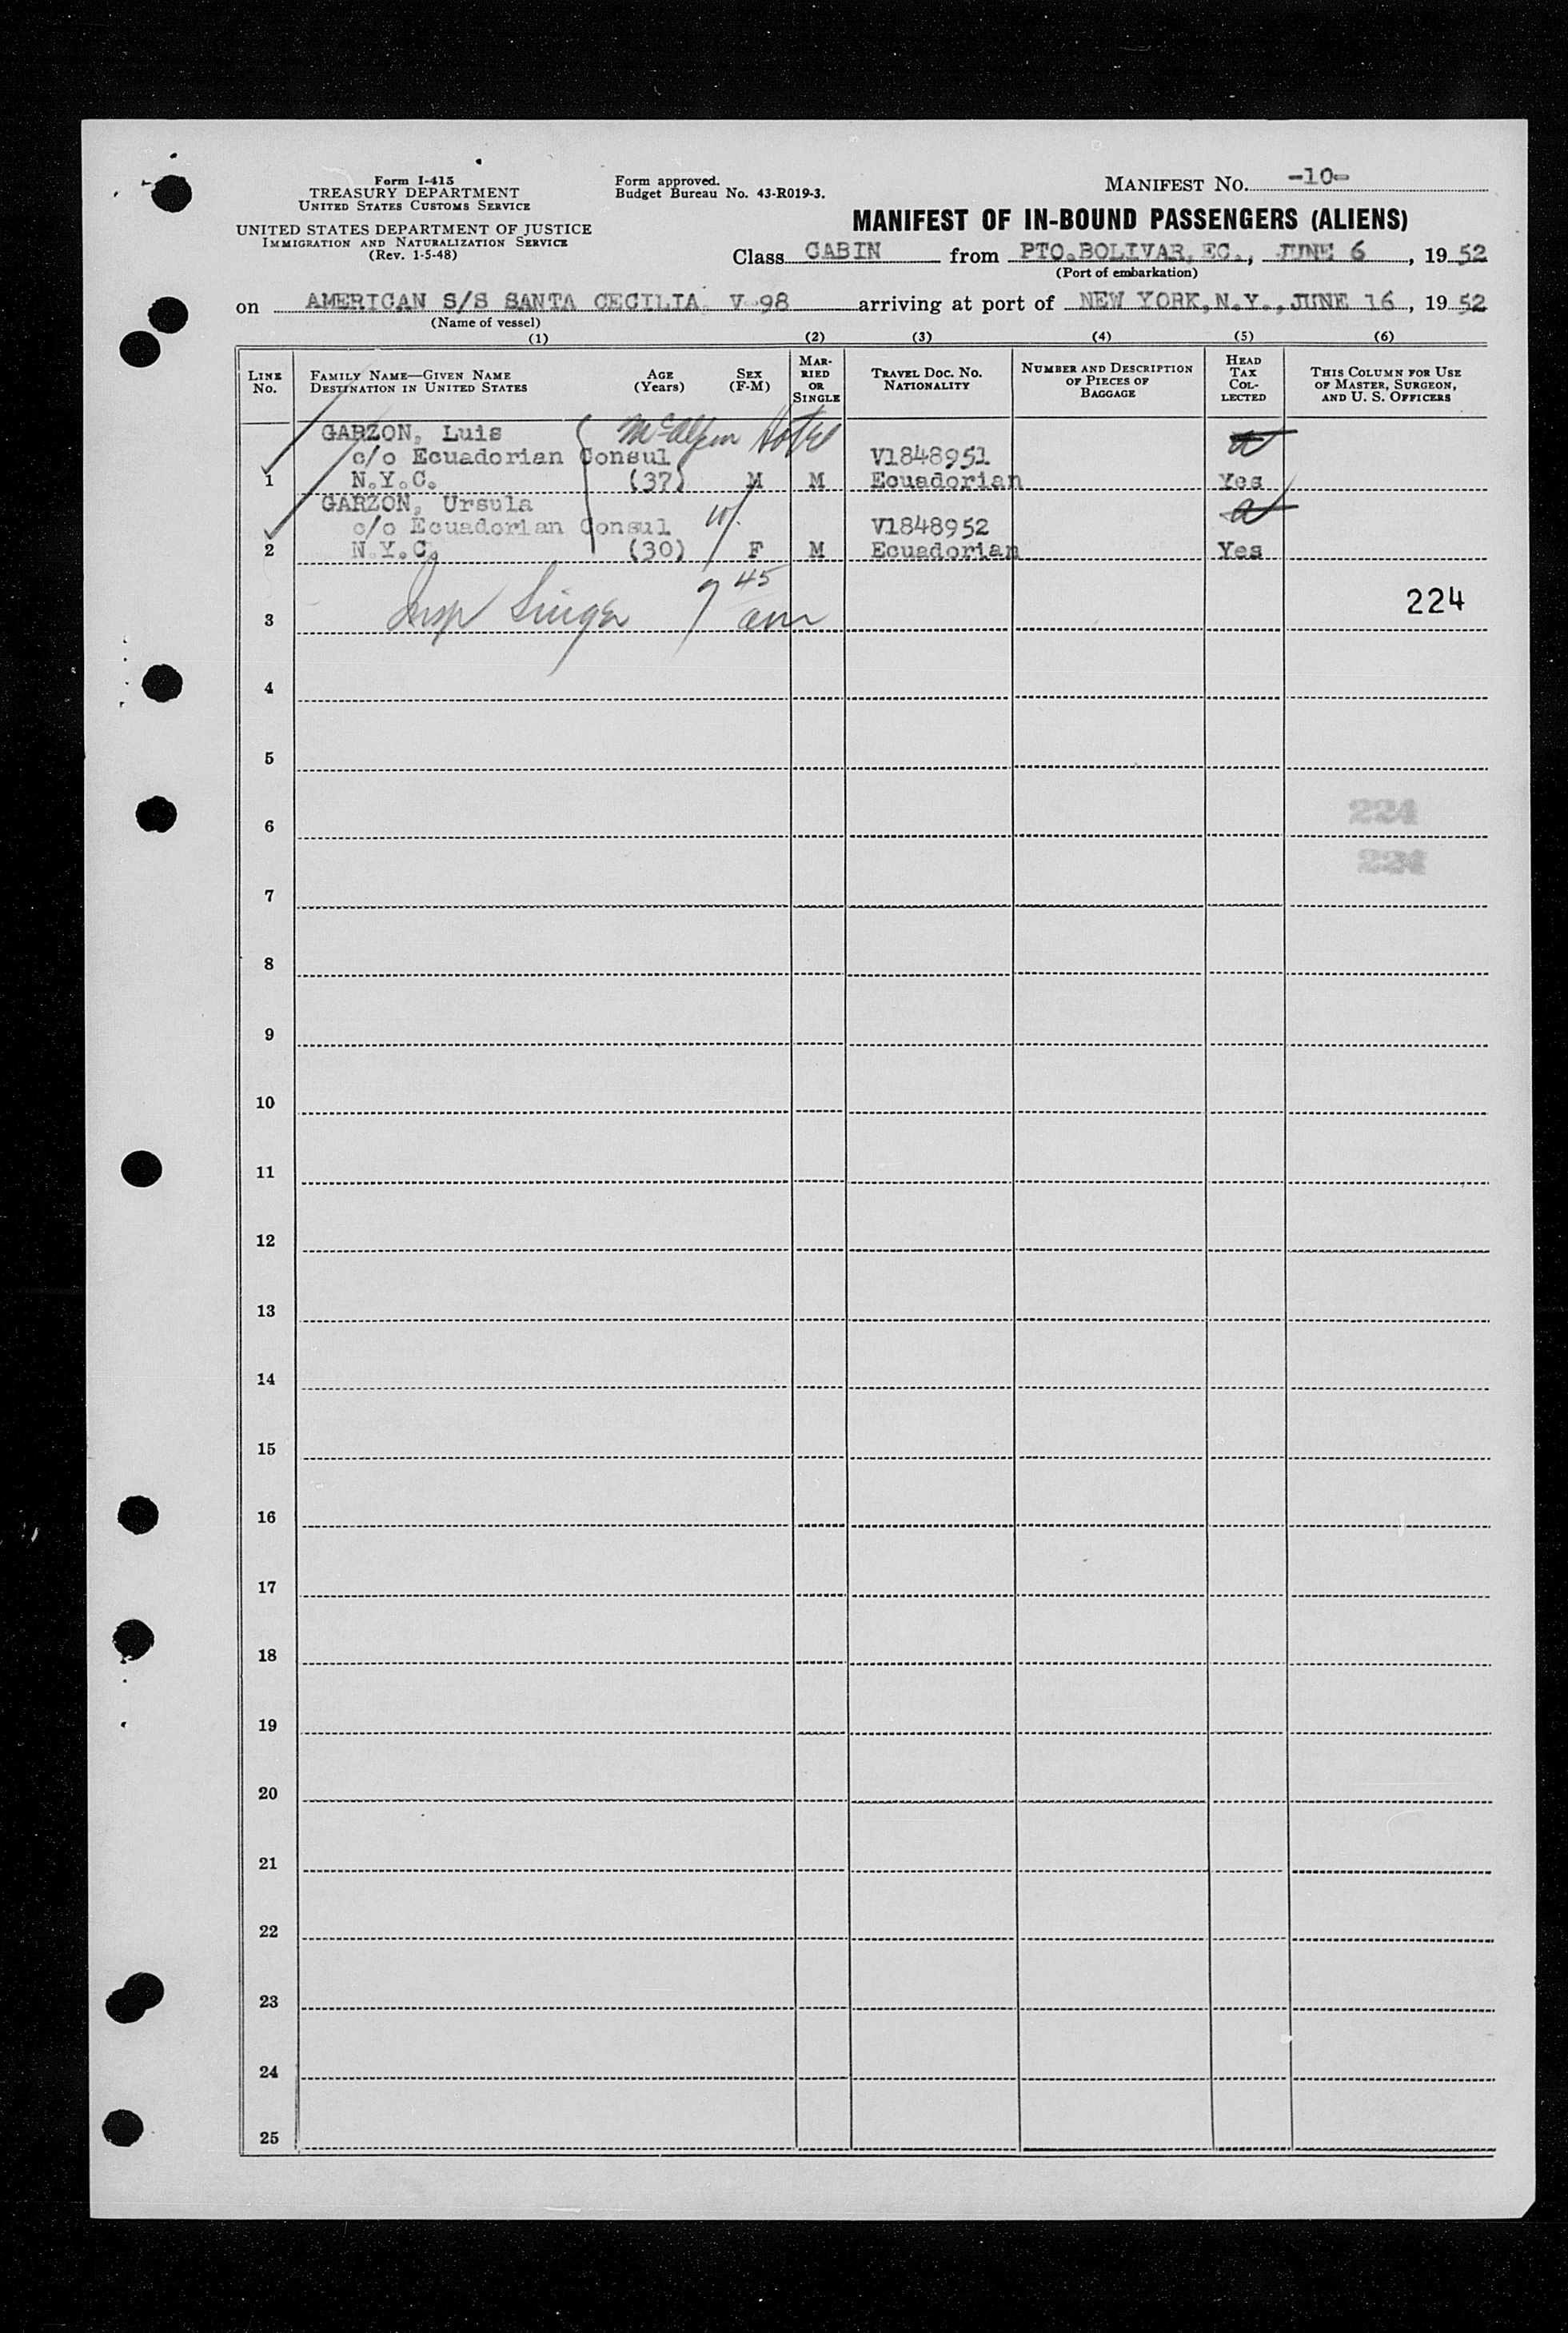 Form I-415
TREASURY DEPARTMENT
UNITED STATES CUSTOMS SERVICE
UNITED STATES DEPARTMENT OF JUSTICE
IMMIGRATION AND NATURALIZATION SERVICE
(Rev. 1-5-48)
Form approved.
Budget Bureau No. 43-R019-3.
MANIFEST NO. -10-
MANIFEST OF IN-BOUND PASSENGERS (ALIENS)
Class CABIN from PTO.BOLIVAR, EC., JUNE 6, 1952
(Port of embarkation)
on AMERICAN S/S SANTA CECILIA V-98 arriving at port of NEW YORK,N.Y., JUNE 16, 1952
(Name of vessel)
(1) (2) (3) (4) (5) (6)
LINE No. FAMILY NAME—GIVEN NAME DESTINATION IN UNITED STATES AGE (Years) SEX (F-M) MARRIED OR SINGLE TRAVEL DOC. NO. NATIONALITY NUMBER AND DESCRIPTION OF PIECES OF BAGGAGE HEAD TAX COLLECTED THIS COLUMN FOR USE OF MASTER, SURGEON, AND U. S. OFFICERS
GARZON, Luis McAlpin Hotel
c/o Ecuadorian Consul V1848951
1 N.Y.C. (37) M M Ecuadorian Yes
GARZON, Ursula
c/o Ecuadorian Consul V1848952
2 N.Y.C. (30) F M Ecuadorian Yes
Insp Singer 7 45 am 224
3
4
5
6 224
224
7
8
9
10
11
12
13
14
15
16
17
18
19
20
21
22
23
24
25